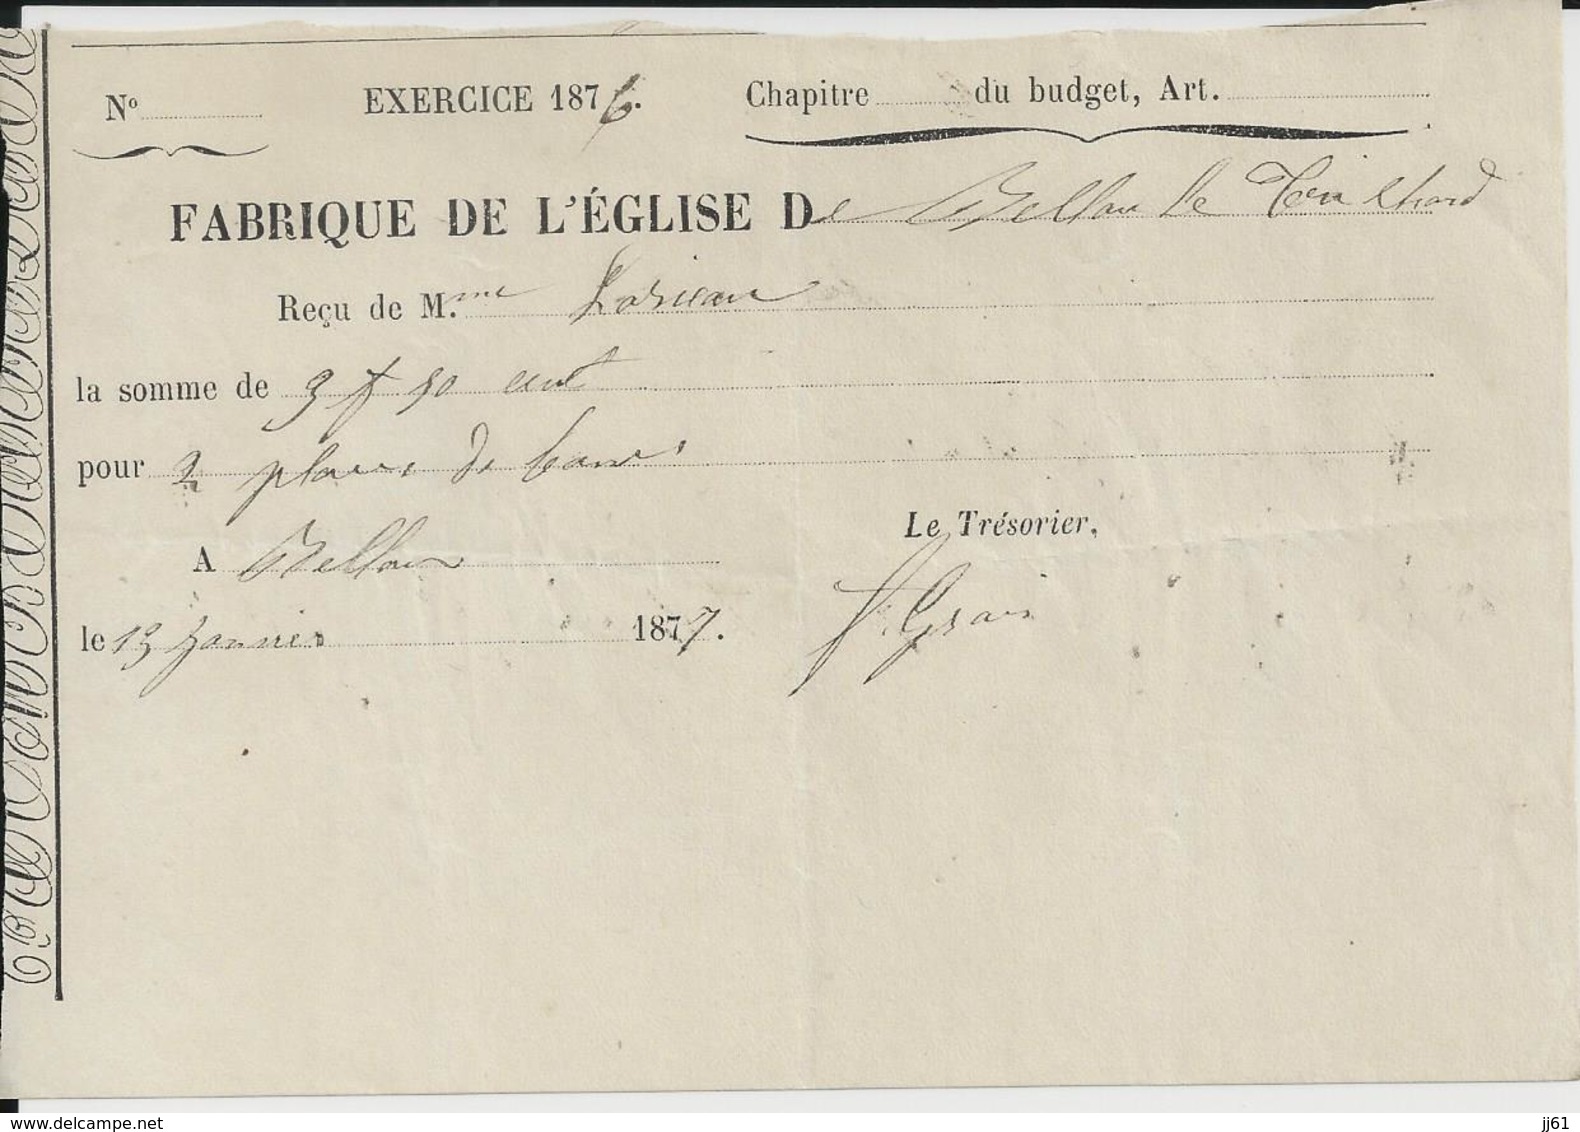 N° EXERCICE 1876. Chapitre du budget, Art.
FABRIQUE DE L'ÉGLISE De Bellou le Trichard
Reçu de M.me Lorieau
la somme de 3 f 50 cent
pour 2 places de bancs
A Bellou
Le Trésorier,
le 13 Janvier 1877.
jj61